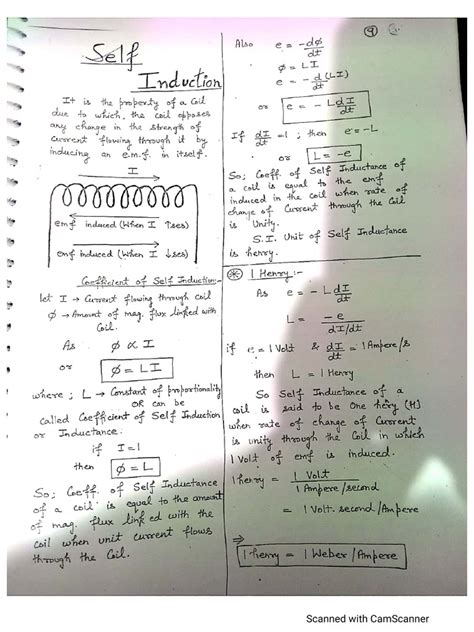 Self
Induction
It is the property of a Coil
due to which, the coil opposes
any change in the strength of
current flowing through it by
inducing an e.m.f. in itself.
I
emf induced (When I ↑ses)
emf induced (When I ↓ses)
Coefficient of Self Induction:-
let I → Current flowing through coil
ϕ → Amount of mag. flux linked with
Coil.
As ϕ ∝ I
or ϕ = LI
where ; L → Constant of proportionality
OR can be
called Coefficient of Self Induction
or Inductance.
if I = 1
then ϕ = L
So; Coeff. of Self Inductance
of a coil is equal to the amount
of mag. flux linked with the
coil when unit current flows
through the Coil.
9
Also e = -dϕ/dt
ϕ = LI
e = -d/dt (LI)
or e = - L dI/dt
If dI/dt = 1 ; then e = -L
or L = -e
So; Coeff. of Self Inductance of
a coil is equal to the emf
induced in the coil when rate of
change of Current through the Coil
is Unity.
S.I. Unit of Self Inductance
is henry.
1 Henry:-
As e = - L dI/dt
L = -e / dI/dt
if e = 1 Volt & dI/dt = 1 Ampere/s
then L = 1 Henry
So Self Inductance of a
coil is said to be One henry (H)
when rate of change of Current
is unity through the Coil in which
1 Volt of emf is induced.
1 henry = 1 Volt / 1 Ampere/second
= 1 Volt. second / Ampere
⇒ 1 henry = 1 Weber / Ampere
Scanned with CamScanner